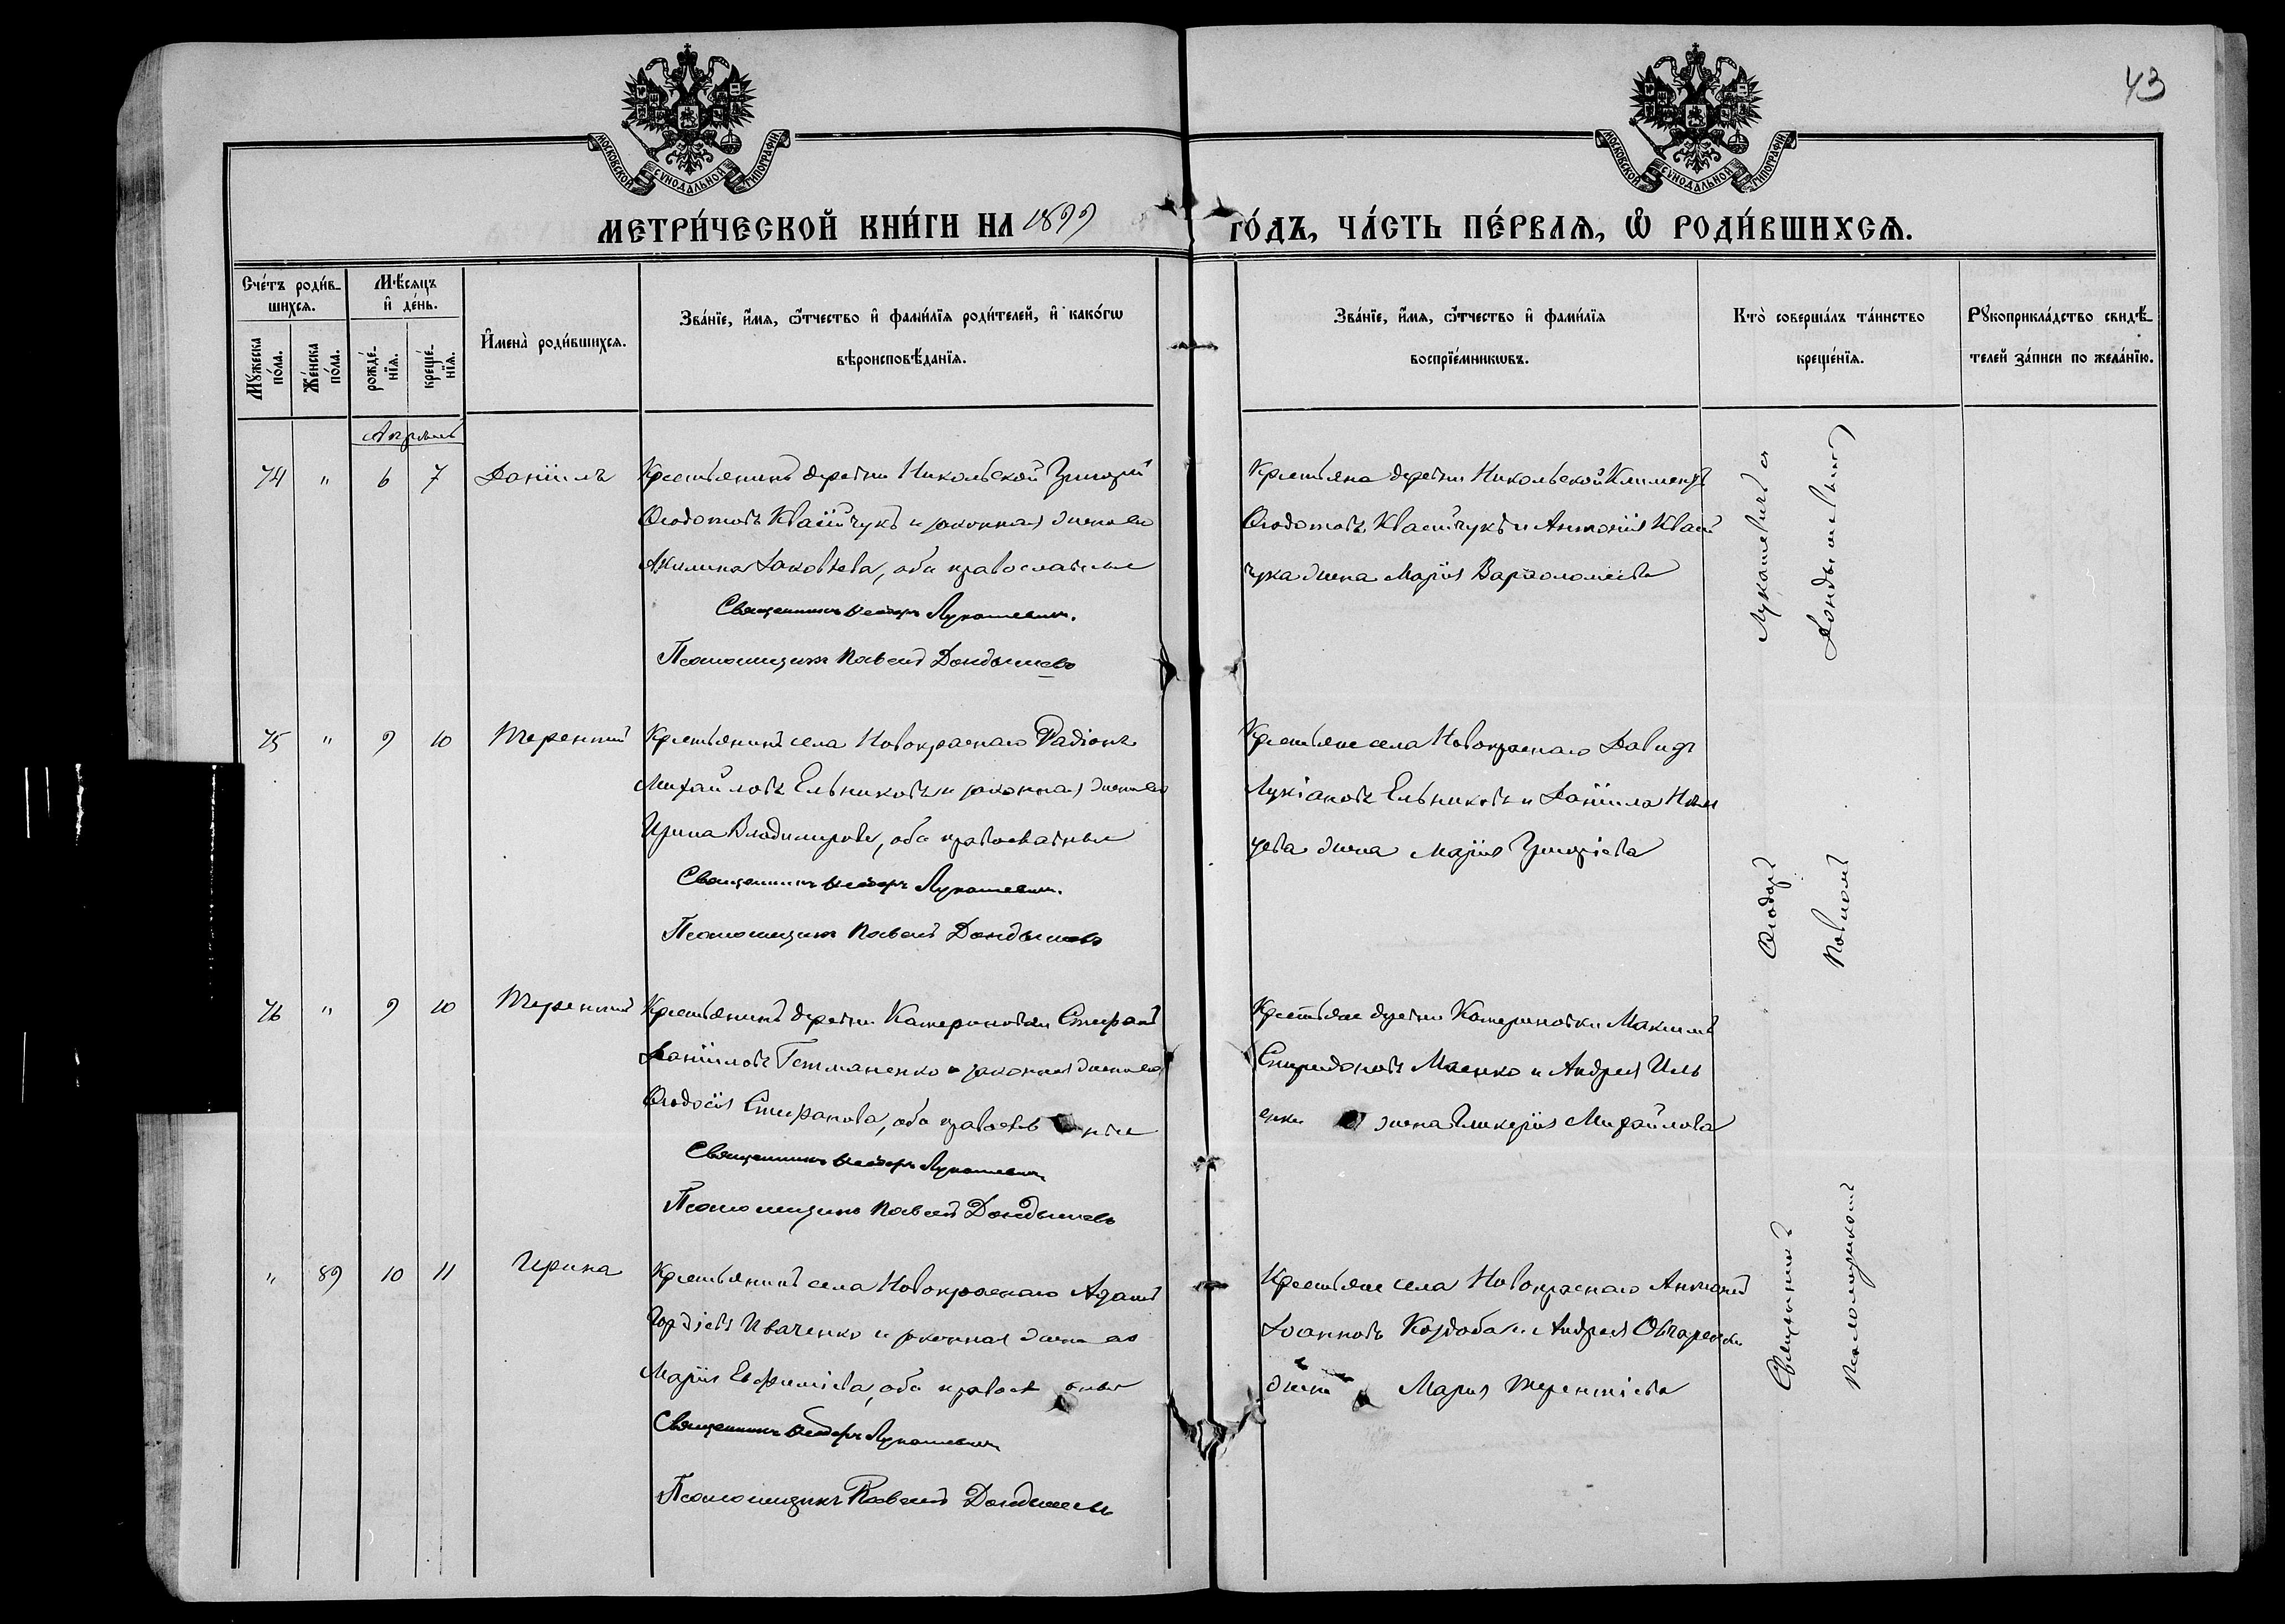 43
МОСКОВСКОЙ СУНОДАЛЬНОЙ ТИПОГРАФІИ
МОСКОВСКОЙ СУНОДАЛЬНОЙ ТИПОГРАФІИ
МЕТРИ́ЧЕСКОЙ КНИ́ГИ НА 1899 ГО́ДЪ, ЧА́СТЬ ПЕ́РВАѦ, Ѡ РОДИ́ВШИХСѦ.
Сче́тъ роди́в-
шихсѧ.
Мꙋ́жеска
по́ла.
Же́нска
по́ла.
Мѣ́сѧцъ
и де́нь.
рожде́-
нїѧ.
креще́-
нїѧ.
Имена̀ роди́вшихсѧ.
Зва́нїе, и́мѧ, ѻ́тчество и фами́лїѧ роди́телей, и како́гѡ
вѣроисповѣ́данїѧ.
Зва́нїе, и́мѧ, ѻ́тчество и фами́лїѧ
воспрїе́мникѡвъ.
Кто̀ соверша́лъ та́инство
креще́нїѧ.
Рꙋкоприкла́дство свидѣ́-
телей за́писи по жела́нїю.
Апрѣль
74 " 6 7 Даніилъ
Крестьянинъ деревни Никольской Григорій
Ѳеодотовъ Квашчукъ и законная жена его
Акилина Іаковлева, оба православные
Священникъ Ѳеодоръ Лукашевичъ.
Псаломщикъ Павелъ Дондышевъ
Крестьяне деревни Никольской Климентъ
Ѳеодотовъ и Антонія
чука жена Марія Варѳоломеева
75 " 9 10 Терентій
Крестьянинъ села Новокраснаго Радіонъ
Михайловъ Ельниковъ и законная жена его
Ирина Владимірова, оба православные
Священникъ Ѳеодоръ Лукашевичъ.
Псаломщикъ Павелъ Дондышевъ
Крестьяне села Новокраснаго Давидъ
Лукіановъ Ельниковъ и Даніила
жена Марія Григоріева
76 " 9 10 Терентій
Крестьянинъ деревни Катериновки Стефанъ
Даніиловъ Гетманенко и законная жена его
Ѳеодосія Стефанова, оба православные
Священникъ Ѳеодоръ Лукашевичъ
Псаломщикъ Павелъ Дондышевъ
Крестьяне деревни Катериновки Максимъ
Спиридоновъ Маенко и Андрея Иль
енка жена Гликерія Михайлова
" 89 10 11 Ирина
Крестьянинъ села Новокраснаго Адамъ
Гордіевъ Иваченко и законная жена его
Марія Евфиміева, оба православные
Священникъ Ѳеодоръ Лукашевичъ
Псаломщикъ Павелъ Дондышевъ
Крестьяне села Новокраснаго Антоній
Іоанновъ Кордоба и Андрея Овчаренка
жена Марія Терентіева
Священникъ Ѳеодоръ Лукашевичъ съ
Псаломщикомъ Павломъ Дондышевымъ